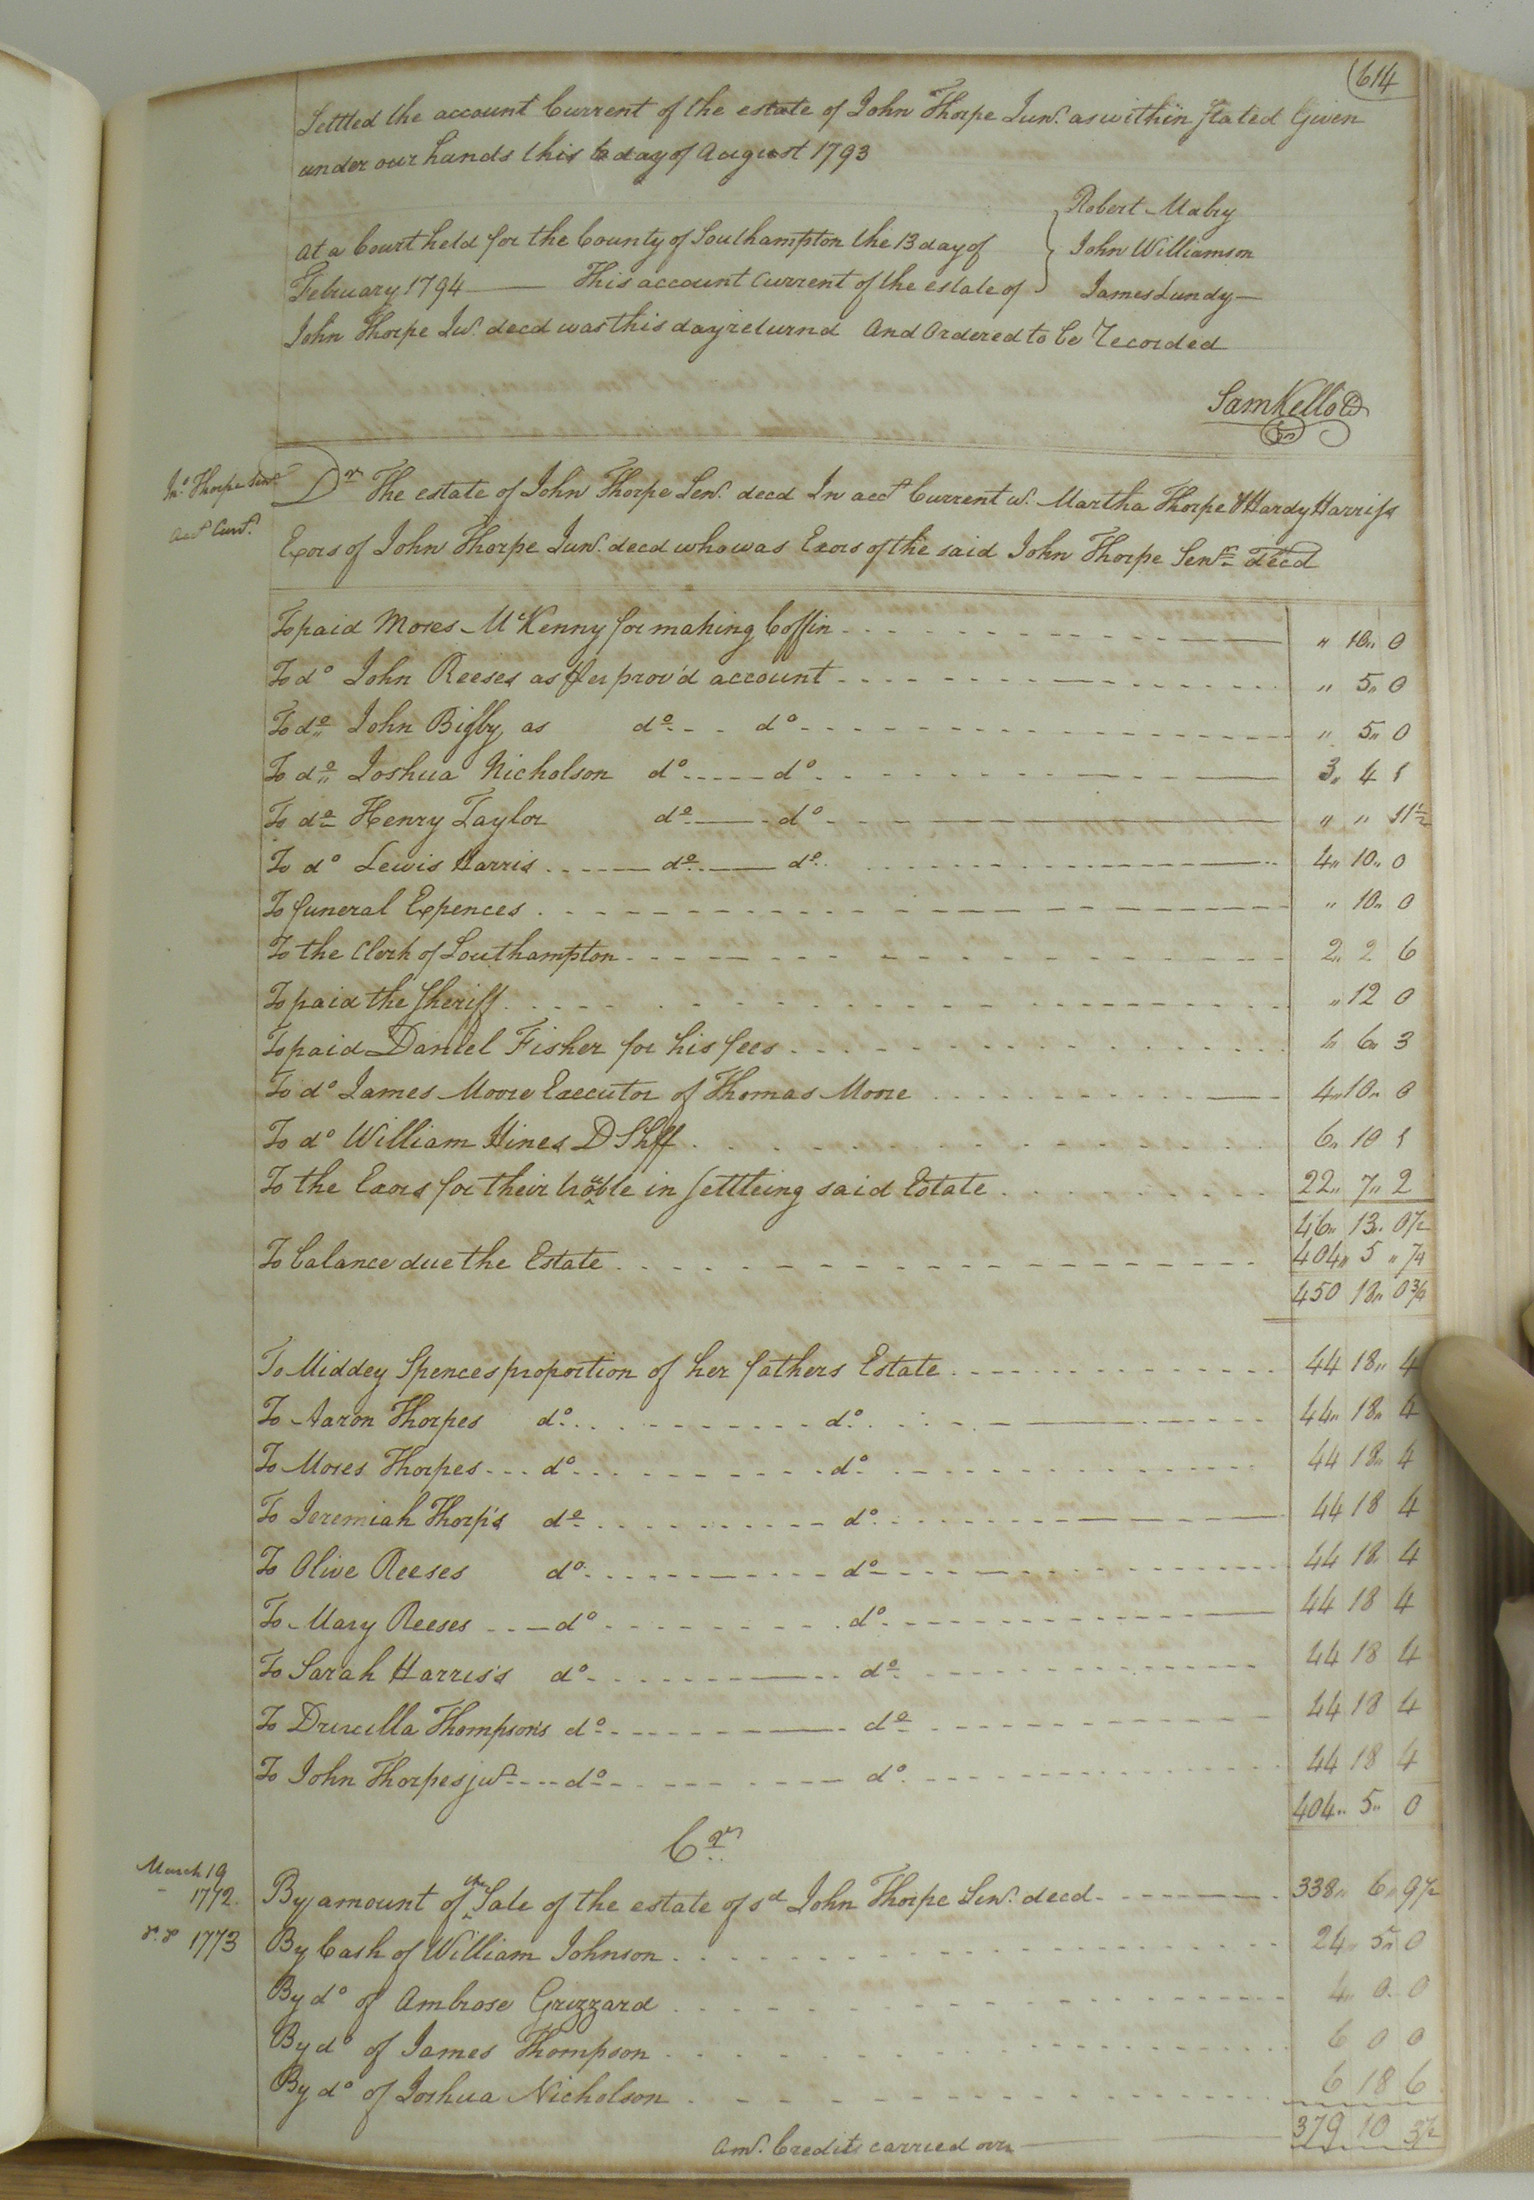 614
Settled the account Current of the estate of John Thorpe Junr. as within stated Given
under our hands this 6 day of August 1793
Robert Mabry
At a Court held for the County of Southampton the 13 day of } John Williamson
February 1794 —— This account Current of the estate of } James Lundy —
John Thorpe Jur. decd was this day returnd And Ordered to be Recorded
Sam Kello Cl
Jno. Thorpe Senr. Acct Curt.
Dr The estate of John Thorpe Senr. decd In acct Current w. Martha Thorpe & Hardy Harriss
Exors of John Thorpe Junr. decd who was Exors of the said John Thorpe Senr. decd
To paid Moses McKenny for making Coffin " 10 " 0
To do John Reeses as per prov'd account " 5 " 0
To do John Bigby as do do " 5 " 0
To do Joshua Nicholson do do 3 " 4 1
To do Henry Taylor do do " " 11 1/2
To do Lewis Harris do do 4 " 10 " 0
To funeral Expences " 10 " 0
To the Clerk of Southampton 2 " 2 6
To paid the Sheriff " 12 0
To paid Daniel Fisher for his fees 1 " 6 " 3
To do James Moore Executor of Thomas Moore 4 " 10 " 0
To do William Hines D Shff 6 " 10 1
To the Exors for their trouble in settleing said Estate 22 " 7 " 2
46 " 13 " 0 1/2
To balance due the Estate 404 " 5 " 1/4
450 18 " 0 3/4
To Middey Spences proportion of her fathers Estate 44 18 " 4
To Aaron Thorpes do do 44 " 18 " 4
To Moses Thorpes do do 44 18 " 4
To Jeremiah Thorp's do do 44 18 4
To Olive Reeses do do 44 18 4
To Mary Reeses do do 44 18 4
To Sarah Harris's do do 44 18 4
To Drucilla Thompson's do do 44 18 4
To John Thorpes jur. do do 44 18 4
404 " 5 " 0
Cr.
March 19
1772 By amount of the Sale of the estate of sd John Thorpe Senr. decd 338 " 6 " 9 1/2
1773 By Cash of William Johnson 24 " 5 " 0
By do of Ambrose Grizzard 4 " 0 " 0
By do of James Thompson 6 0 0
By do of Joshua Nicholson 6 18 6
Amt. Credits carried over 379 10 3 1/2